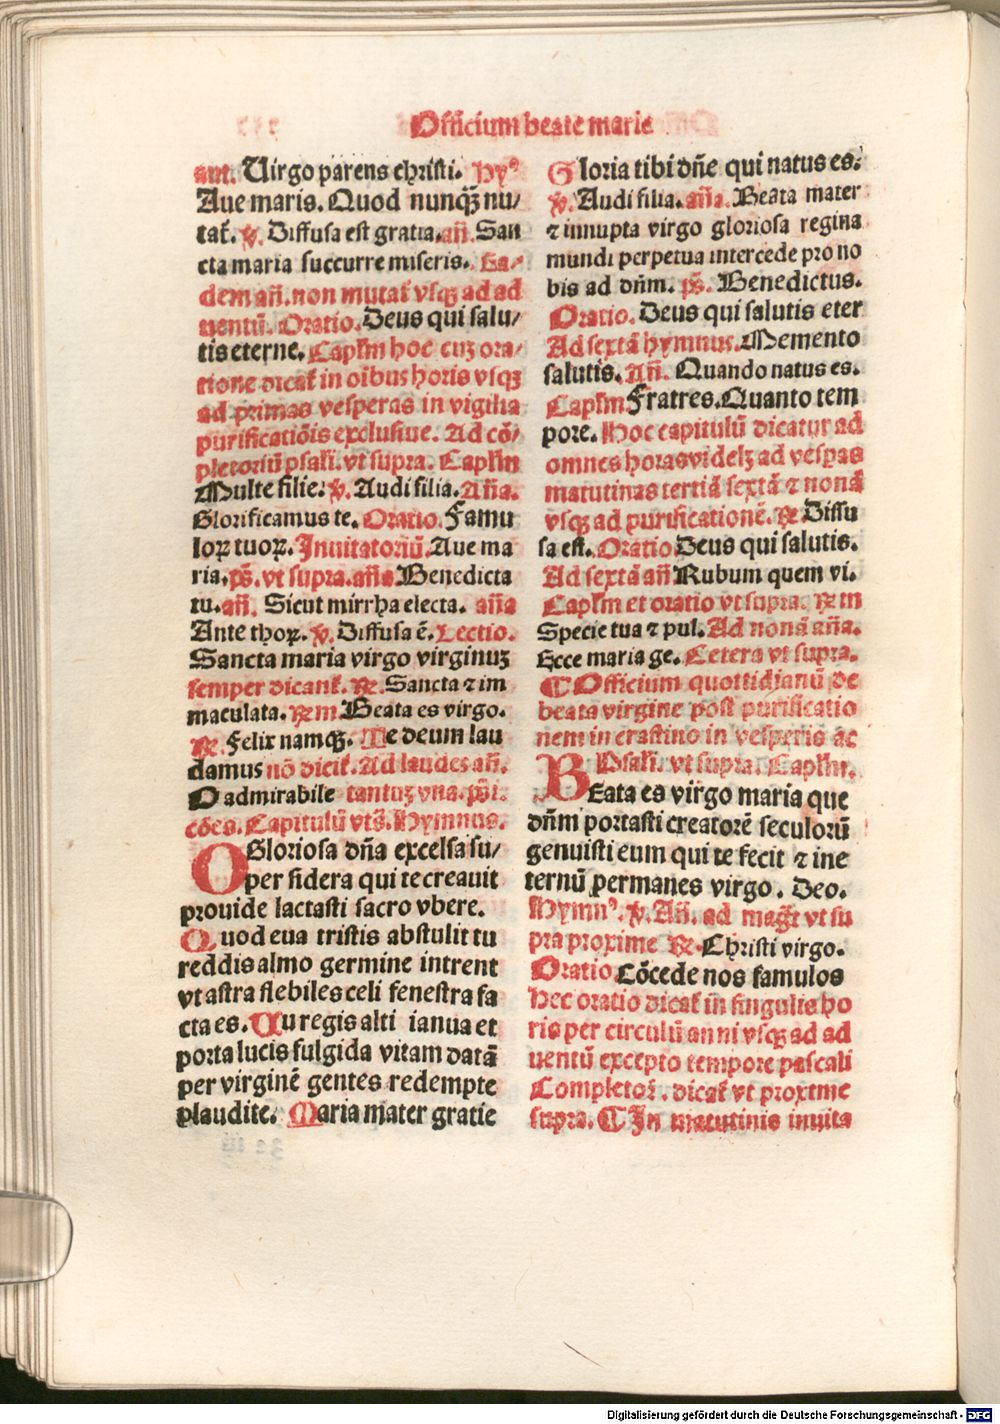 Officium beate marie
ant. Uirgo parens christi. Hyꝰ
Aue maris. Quod nunqꝫ nu/
tat̃. ꝟ. Diffusa est gratia. añ. San
cta maria succurre miseris. Ea/
dem añ. non mutat̃ vsqꝫ ad ad
uentũ. Oratio. Deus qui salu/
tis eterne. Caplm̃ hoc cuꝫ ora/
tione dicat̃ in oĩbus horis vsqꝫ
ad primas vesperas in vigilia
purificatiõis exclusiue. Ad cõ/
pletoriũ psalm̃. vt supra. Caplm̃
Multe filie. ꝟ. Audi filia. Añа.
Glorificamus te. Oratio. Famu
loꝝ tuoꝝ. Inuitatoriũ. Aue ma
ria. ps̃. vt supra. aña Benedicta
tu. añ. Sicut mirrha electa. aña
Ante thoꝝ. ꝟ. Diffusa ẽ. Lectio.
Sancta maria virgo virginuꝫ
semper dicant̃. ꝶ. Sancta ⁊ im
maculata. ꝶm. Beata es virgo.
ꝶ. Felix namqꝫ. Te deum lau
damus nõ dicit̃. Ad laudes añ.
O admirabile tantuꝫ vna. ps̃i.
cões. Capitulũ vts̃. Hymnus.
O Gloriosa dña excelsa su/
per sidera qui te creauit
prouide lactasti sacro vbere.
Quod eua tristis abstulit tu
reddis almo germine intrent
vt astra flebiles celi fenestra fa
cta es. Tu regis alti ianua et
porta lucis fulgida vitam datã
per virginẽ gentes redempte
plaudite. Maria mater gratie
Gloria tibi dñe qui natus es.
ꝟ. Audi filia. aña. Beata mater
⁊ innupta virgo gloriosa regina
mundi perpetua intercede pro no
bis ad dñm. ps̃. Benedictus.
Oratio. Deus qui salutis eter
Ad sextã hymnus. Memento
salutis. Añ. Quando natus es.
Caplm̃ Fratres. Quanto tem
pore. Hoc capitulũ dicatur ad
omnes horas videlꝫ ad vesp̃as
matutinas tertiã sextã ⁊ nonã
vsqꝫ ad purificationẽ. ꝶ Diffu
sa est. Oratio Deus qui salutis.
Ad sextã añ Rubum quem vi.
Caplm̃ et oratio vt supra. ꝶm
Specie tua ⁊ pul. Ad nonã aña.
Ecce maria ge. Cetera vt supra.
¶ Officium quottidianũ de
beata virgine post purificatio
nem in crastino in vesperis ac
Psalm̃. vt supra. Caplm̃.
BEata es virgo maria que
dñm portasti creatorẽ seculorũ
genuisti eum qui te fecit ⁊ in e
ternũ permanes virgo. Deo.
Hymnꝰ. ꝟ. Añ. ad mag̃t vt su
pra proxime ꝶ. Christi virgo.
Oratio Cõcede nos famulos
Hec oratio dicat̃ in singulis ho
ris per circulũ anni vsqꝫ ad ad
uentũ excepto tempore pascali
Completoꝝ. dicat̃ vt proxime
supra. ¶ In matutinis inuita
Digitalisierung gefördert durch die Deutsche Forschungsgemeinschaft - DFG